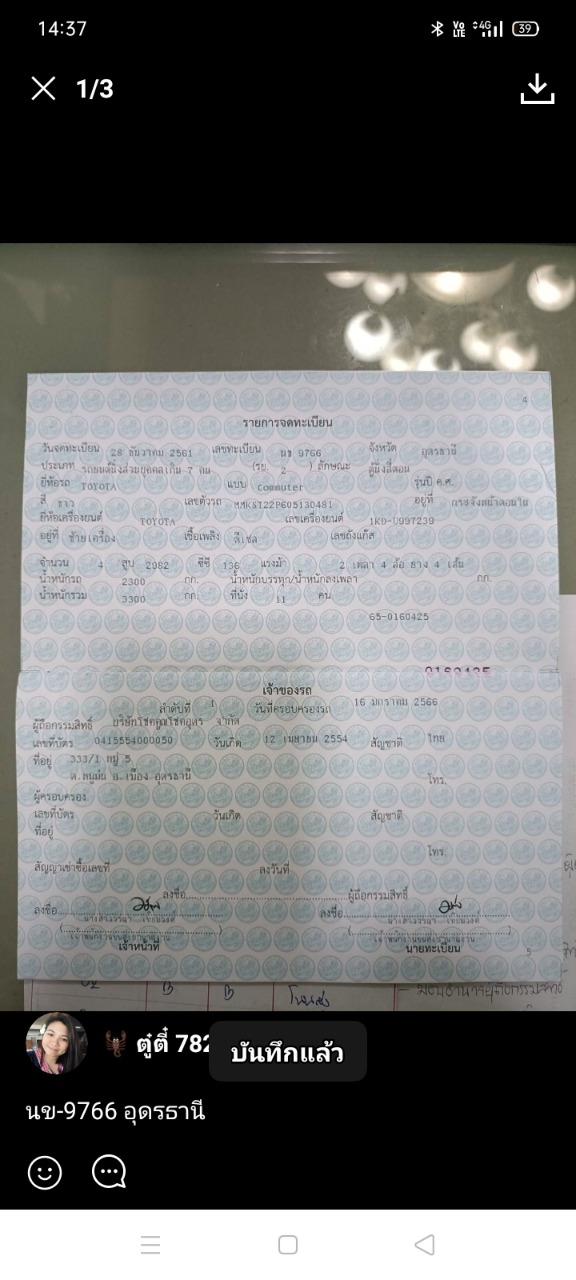 14:37
Vo LTE 4G 39
1/3
4
รายการจดทะเบียน
วันจดทะเบียน 28 ธันวาคม 2561 เลขทะเบียน นข 9766 จังหวัด อุดรธานี
ประเภท รถยนต์นั่งส่วนบุคคลเกิน 7 คน (รย. 2 ) ลักษณะ ตู้นั่งสี่ตอน
ยี่ห้อรถ TOYOTA แบบ Commuter รุ่นปี ค.ศ.
สี ขาว เลขตัวรถ MMKST22P605130481 อยู่ที่ กระจังหน้าตอนใน
ยี่ห้อเครื่องยนต์ TOYOTA เลขเครื่องยนต์ 1KD-U997239
อยู่ที่ ซ้ายเครื่อง เชื้อเพลิง ดีเซล เลขถังแก๊ส
จำนวน 4 สูบ 2982 ซีซี 136 แรงม้า 2 เพลา 4 ล้อ ยาง 4 เส้น
น้ำหนักรถ 2300 กก. น้ำหนักบรรทุก/น้ำหนักลงเพลา กก.
น้ำหนักรวม 3300 กก. ที่นั่ง 11 คน
65-0160425
เจ้าของรถ
ลำดับที่ 1 วันที่ครอบครองรถ 16 มกราคม 2566
ผู้ถือกรรมสิทธิ์ บริษัทโชคคูณโชคอุดร จำกัด
เลขที่บัตร 0415554000050 วันเกิด 12 เมษายน 2554 สัญชาติ ไทย
ที่อยู่ 333/1 หมู่ 5
ต.หนูม่น อ.เมือง อุดรธานี โทร.
ผู้ครอบครอง
เลขที่บัตร วันเกิด สัญชาติ
ที่อยู่
โทร.
สัญญาเช่าซื้อเลขที่ ลงวันที่
ลงชื่อ ผู้ถือกรรมสิทธิ์
ลงชื่อ ลงชื่อ
เจ้าหน้าที่ นายทะเบียน
5
ตู๋ตี๋ 782
บันทึกแล้ว
นข-9766 อุดรธานี